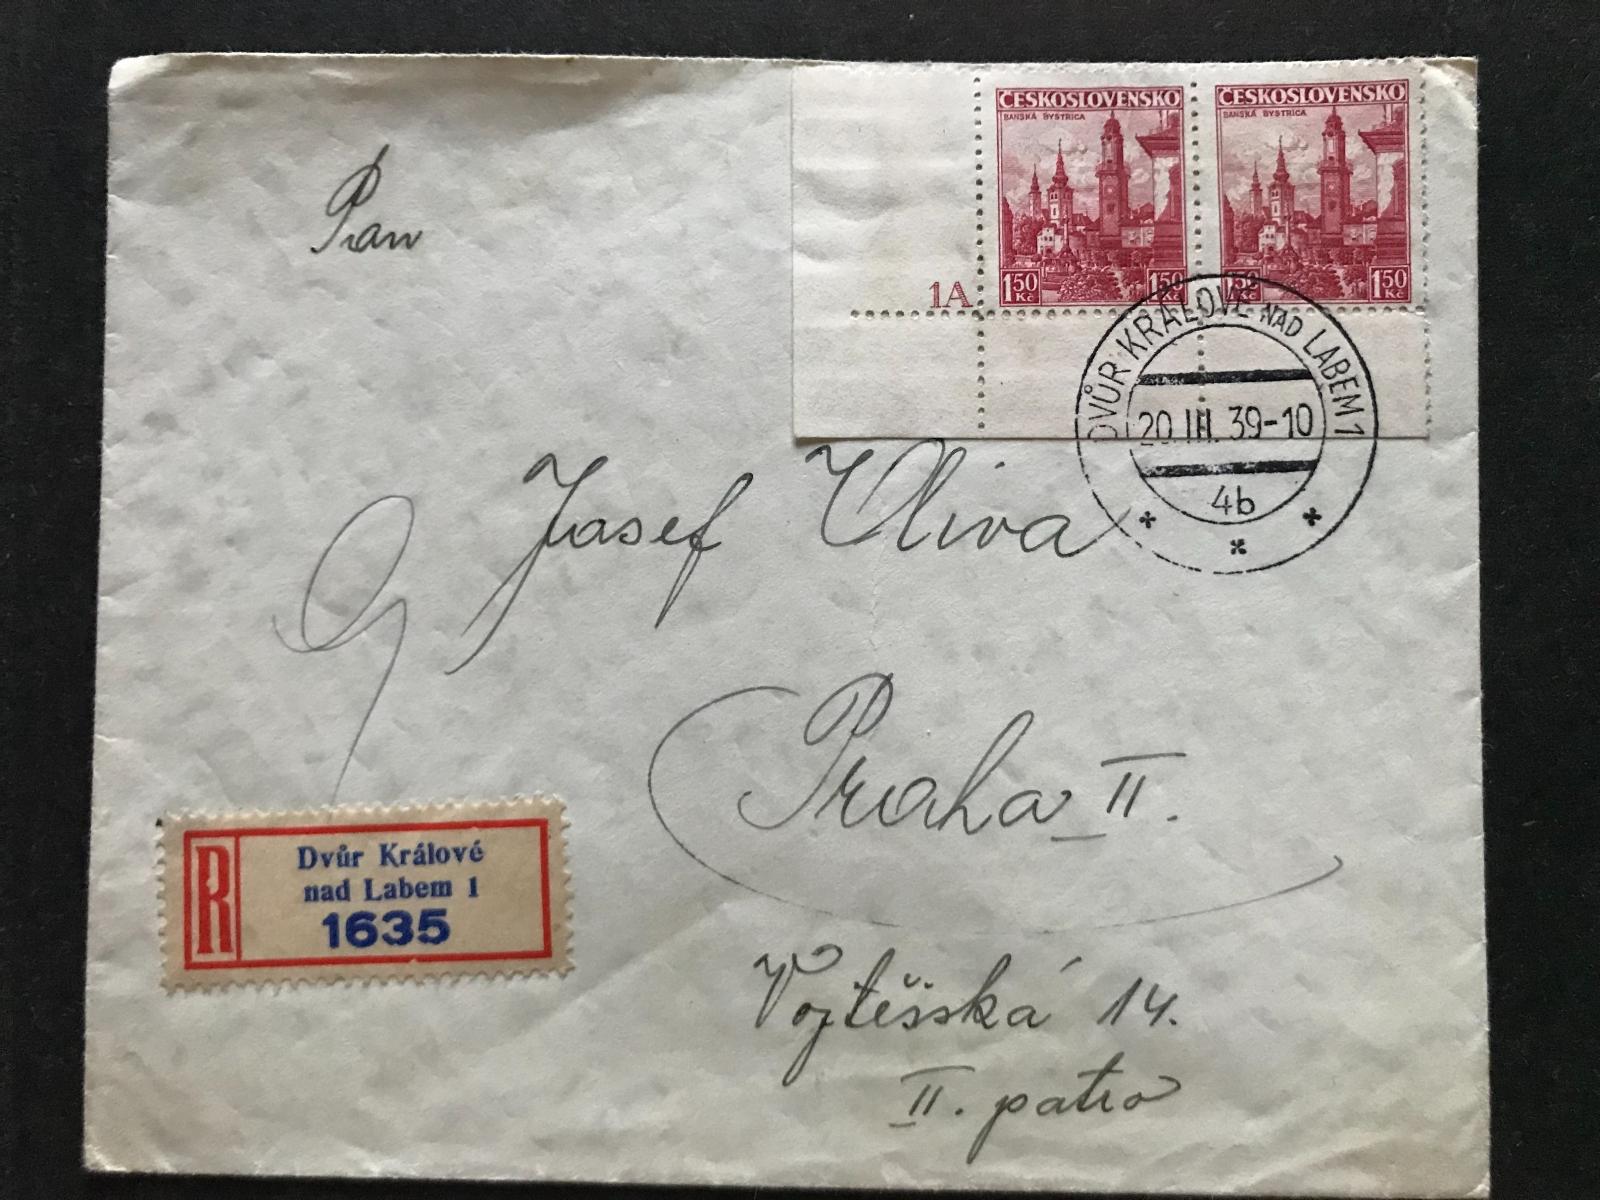 Pan
ČESKOSLOVENSKO ČESKOSLOVENSKO
BANSKÁ BYSTRICA BANSKÁ BYSTRICA
1A 1 50 Kč 1 50 Kč 1 50 Kč 1 50 Kč
DVŮR KRÁLOVÉ NAD LABEM 1
20.III.39-10
4b
Josef Oliva
Praha II.
R Dvůr Králové
nad Labem 1
1635
Vojtěšská 14.
II. patro